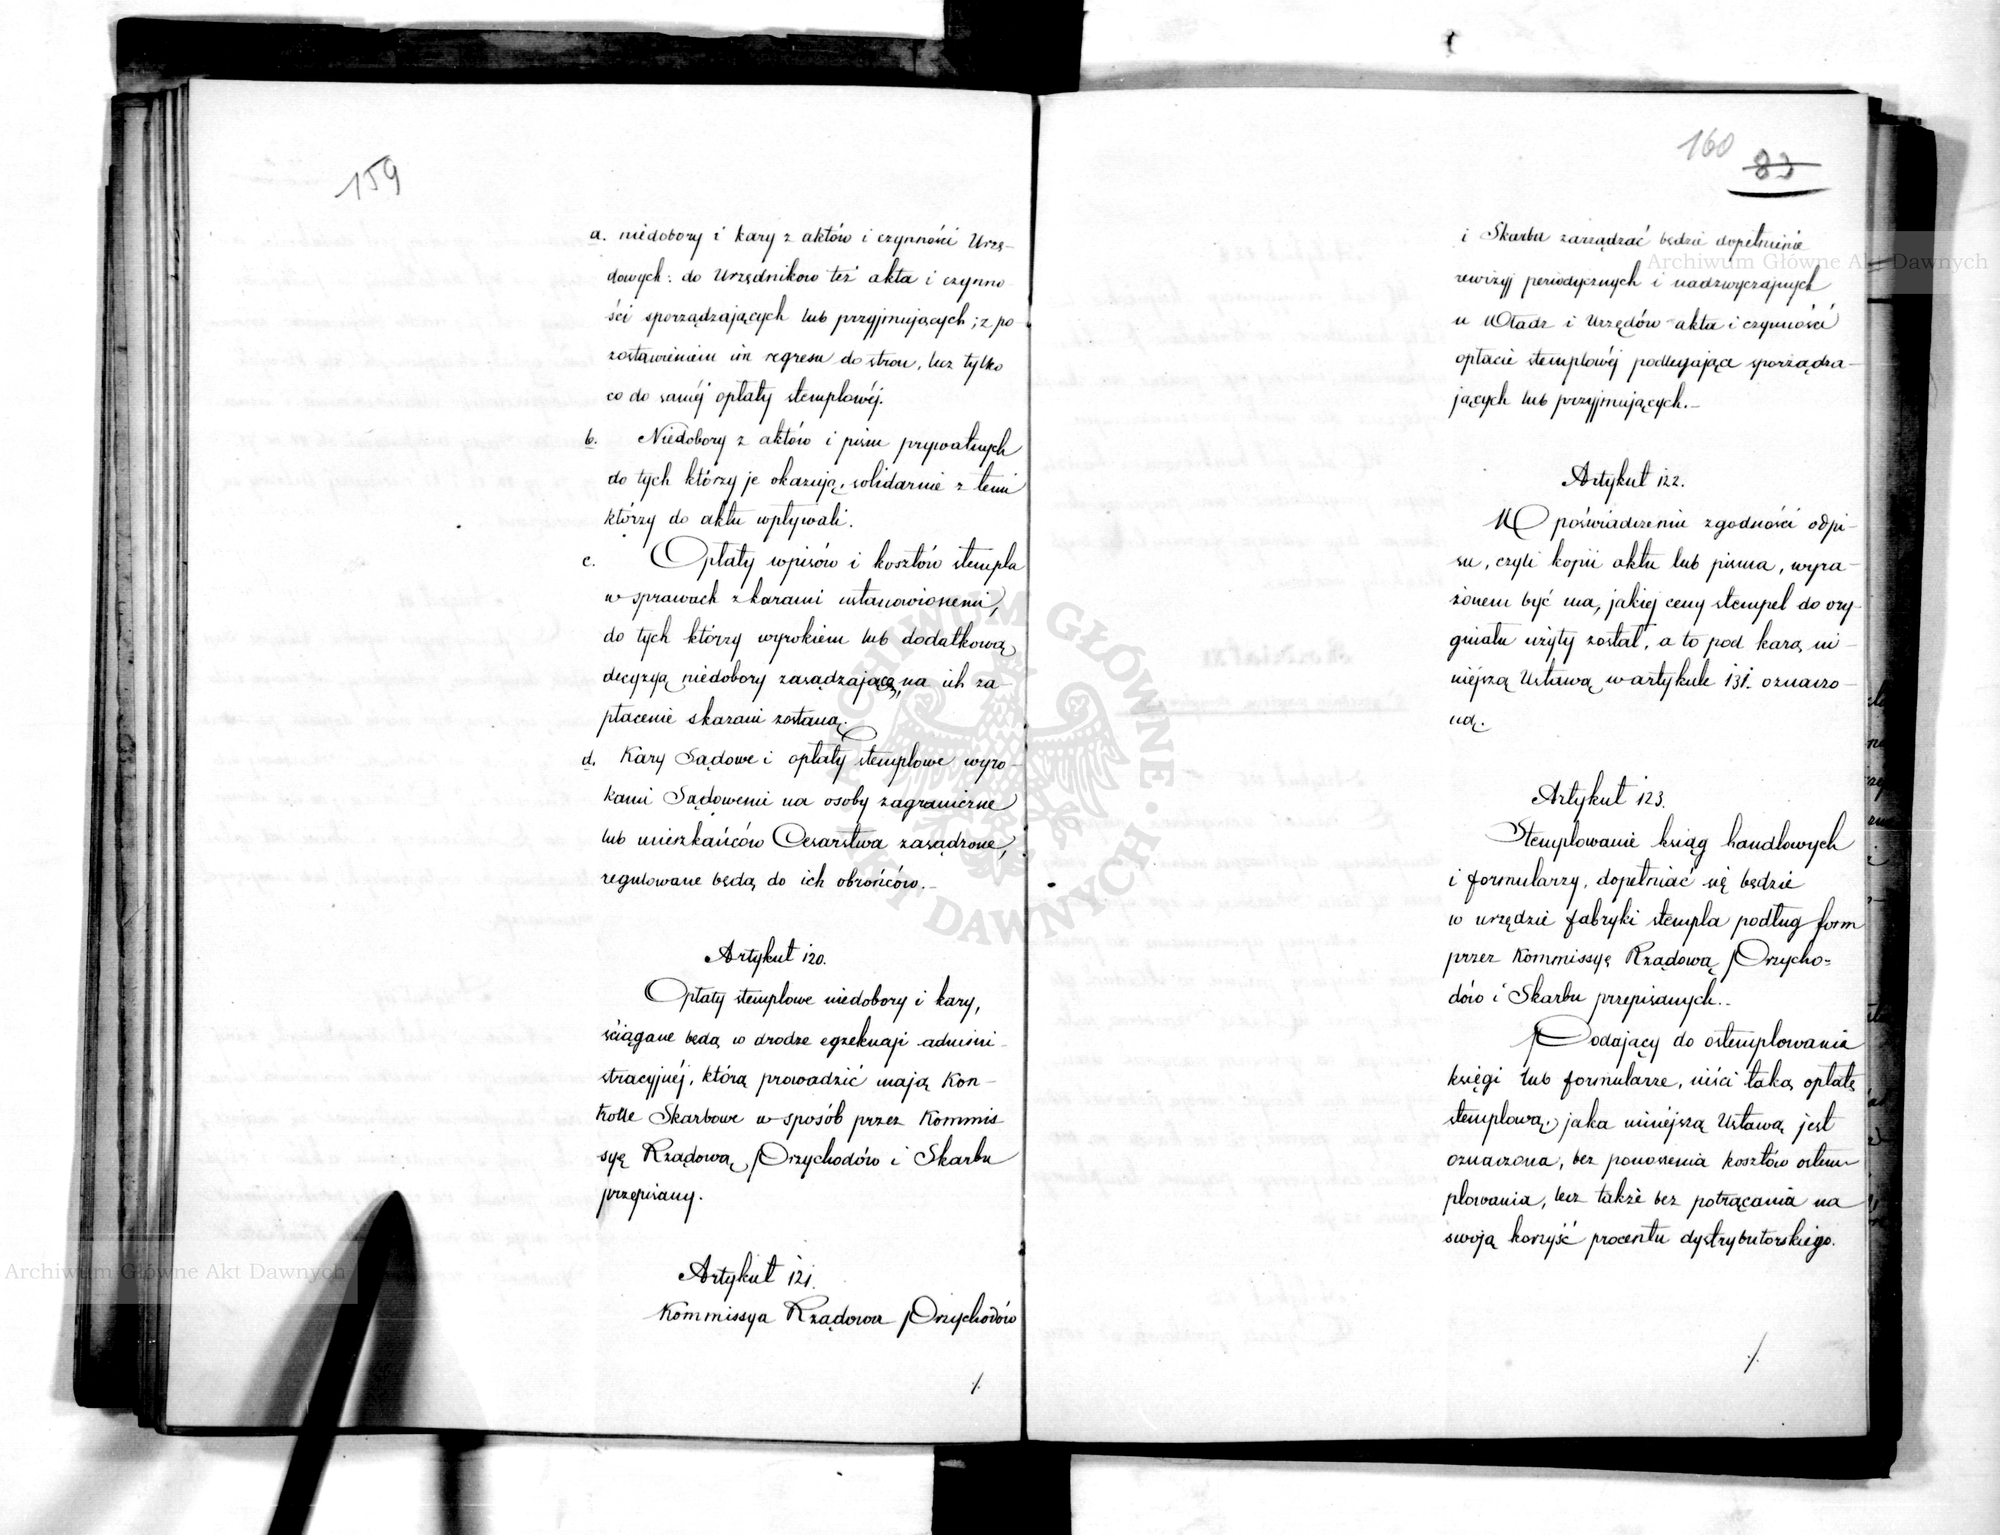 159
a. niedobory i kary z aktów i czynności Urzę-
dowych: do Urzędników też akta i czynno-
ści sporządzających lub przyjmujących; z po-
zostawieniem im regresu do stron, lecz tylko
co do saméj opłaty stemplowéj.
b. Niedobory z aktów i pism prywatnych
do tych którzy je okazują, solidarnie z temi
którzy do aktu wpływali.
c. Opłaty wpisów i kosztów stempla
w sprawach z karami ustanowionemi,
do tych którzy wyrokiem lub dodatkową
decyzyą niedobory zasądzającą, na ich za-
płacenie skazani zostaną.
d. Kary Sądowe i opłaty stemplowe wyro-
kami Sądowemi na osoby zagraniczne
lub mieszkańców Cesarstwa zasądzone,
regulowane będą do ich obrońców.-
Artykuł 120.
Opłaty stemplowe niedobory i kary,
ściągane będą w drodze egzekucyi admini-
stracyjnéj, którą prowadzić mają Kon-
trolle Skarbowe w sposób przez Kommis-
syę Rządową Przychodów i Skarbu
przepisany.
Artykuł 121.
Kommissya Rządowa Przychodów
./.
160 83
i Skarbu zarządzać będzie dopełnienie
rewizyj periodycznych i nadzwyczajnych
u Władz i Urzędów akta i czynności
opłacie stemplowéj podlegające sporządza-
jących lub przyjmujących.-
Artykuł 122.
W poświadczeniu zgodności odpi-
su, czyli kopii aktu lub pisma, wyra-
żonem być ma, jakiej ceny stempel do ory-
ginału użyty został, a to pod karą ni-
niejszą Ustawą w artykule 131. oznaczo-
ną.
Artykuł 123.
Stemplowanie ksiąg handlowych
i formularzy, dopełniać się będzie
w urzędzie fabryki stempla podług form
przez Kommissyę Rządową Przycho-
dów i Skarbu przepisanych.-
Podający do ostemplowania
księgi lub formularze, uiści taką opłatę
stemplową, jaka niniejszą Ustawą jest
oznaczona, bez ponoszenia kosztów ostem-
plowania, lecz także bez potrącania na
swoją korzyść procentu dystrybutorskiego.
./.
Archiwum Główne Akt Dawnych
Archiwum Główne Akt Dawnych
ARCHIWUM GŁÓWNE AKT DAWNYCH